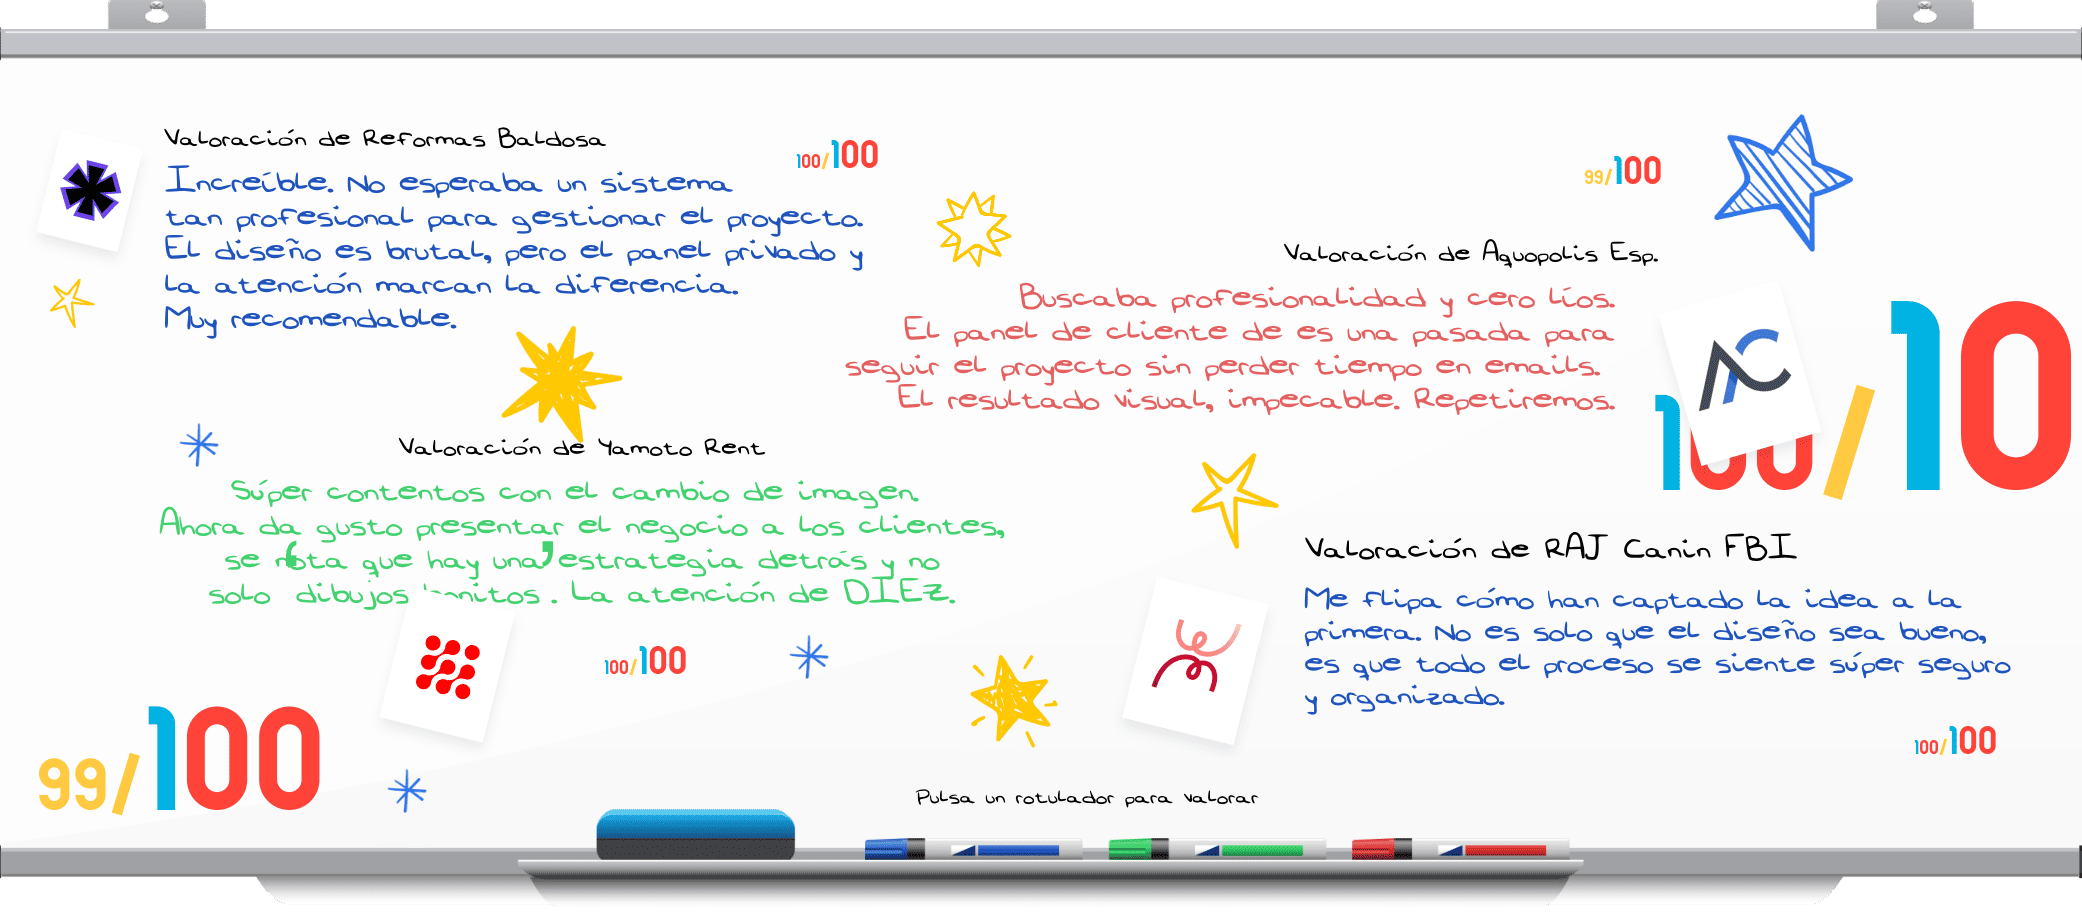 Valoración de Reformas Baldosa
100/100
Increíble. No esperaba un sistema
tan profesional para gestionar el proyecto.
El diseño es brutal, pero el panel privado y
la atención marcan la diferencia.
Muy recomendable.
99/100
Valoración de Aquopolis Esp.
Buscaba profesionalidad y cero líos.
El panel de cliente de es una pasada para
seguir el proyecto sin perder tiempo en emails.
El resultado visual, impecable. Repetiremos.
100/10
Valoración de Yamoto Rent
Súper contentos con el cambio de imagen.
Ahora da gusto presentar el negocio a los clientes,
se nota que hay una estrategia detrás y no
solo dibujos bonitos. La atención de DIEz.
100/100
99/100
Valoración de RAJ Canin FBI
Me flipa cómo han captado la idea a la
primera. No es solo que el diseño sea bueno,
es que todo el proceso se siente súper seguro
y organizado.
100/100
Pulsa un rotulador para valorar